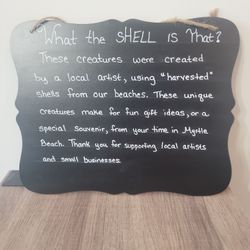 What the SHELL is That?
These creatures were created
by a local artist, using "harvested"
shells from our beaches. These unique
creatures make for fun gift ideas, or a
special souvenir, from your time in Myrtle
Beach. Thank you for supporting local artists
and small businesses.